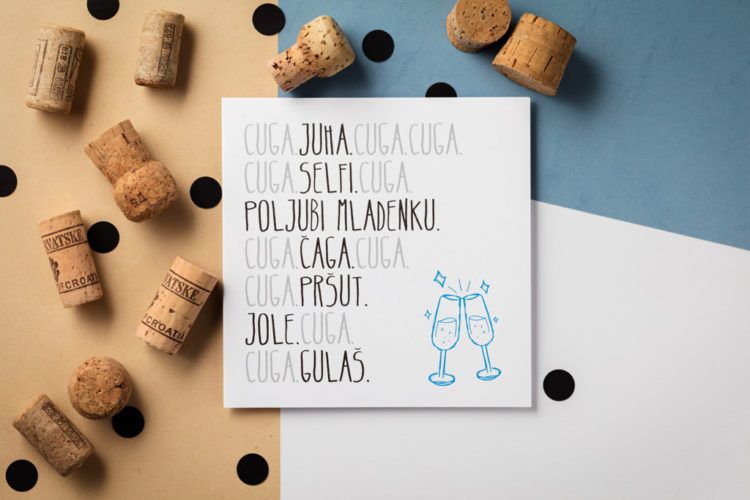 CUGA.JUHA.CUGA.CUGA.
CUGA.SELFI.CUGA.
POLJUBI MLADENKU.
CUGA.ČAGA.CUGA.
CUGA.PRŠUT.
JOLE.CUGA.
CUGA.GULAŠ.
RVATSKE
OF CROATIA
HRVATSKE
OF CROATIA